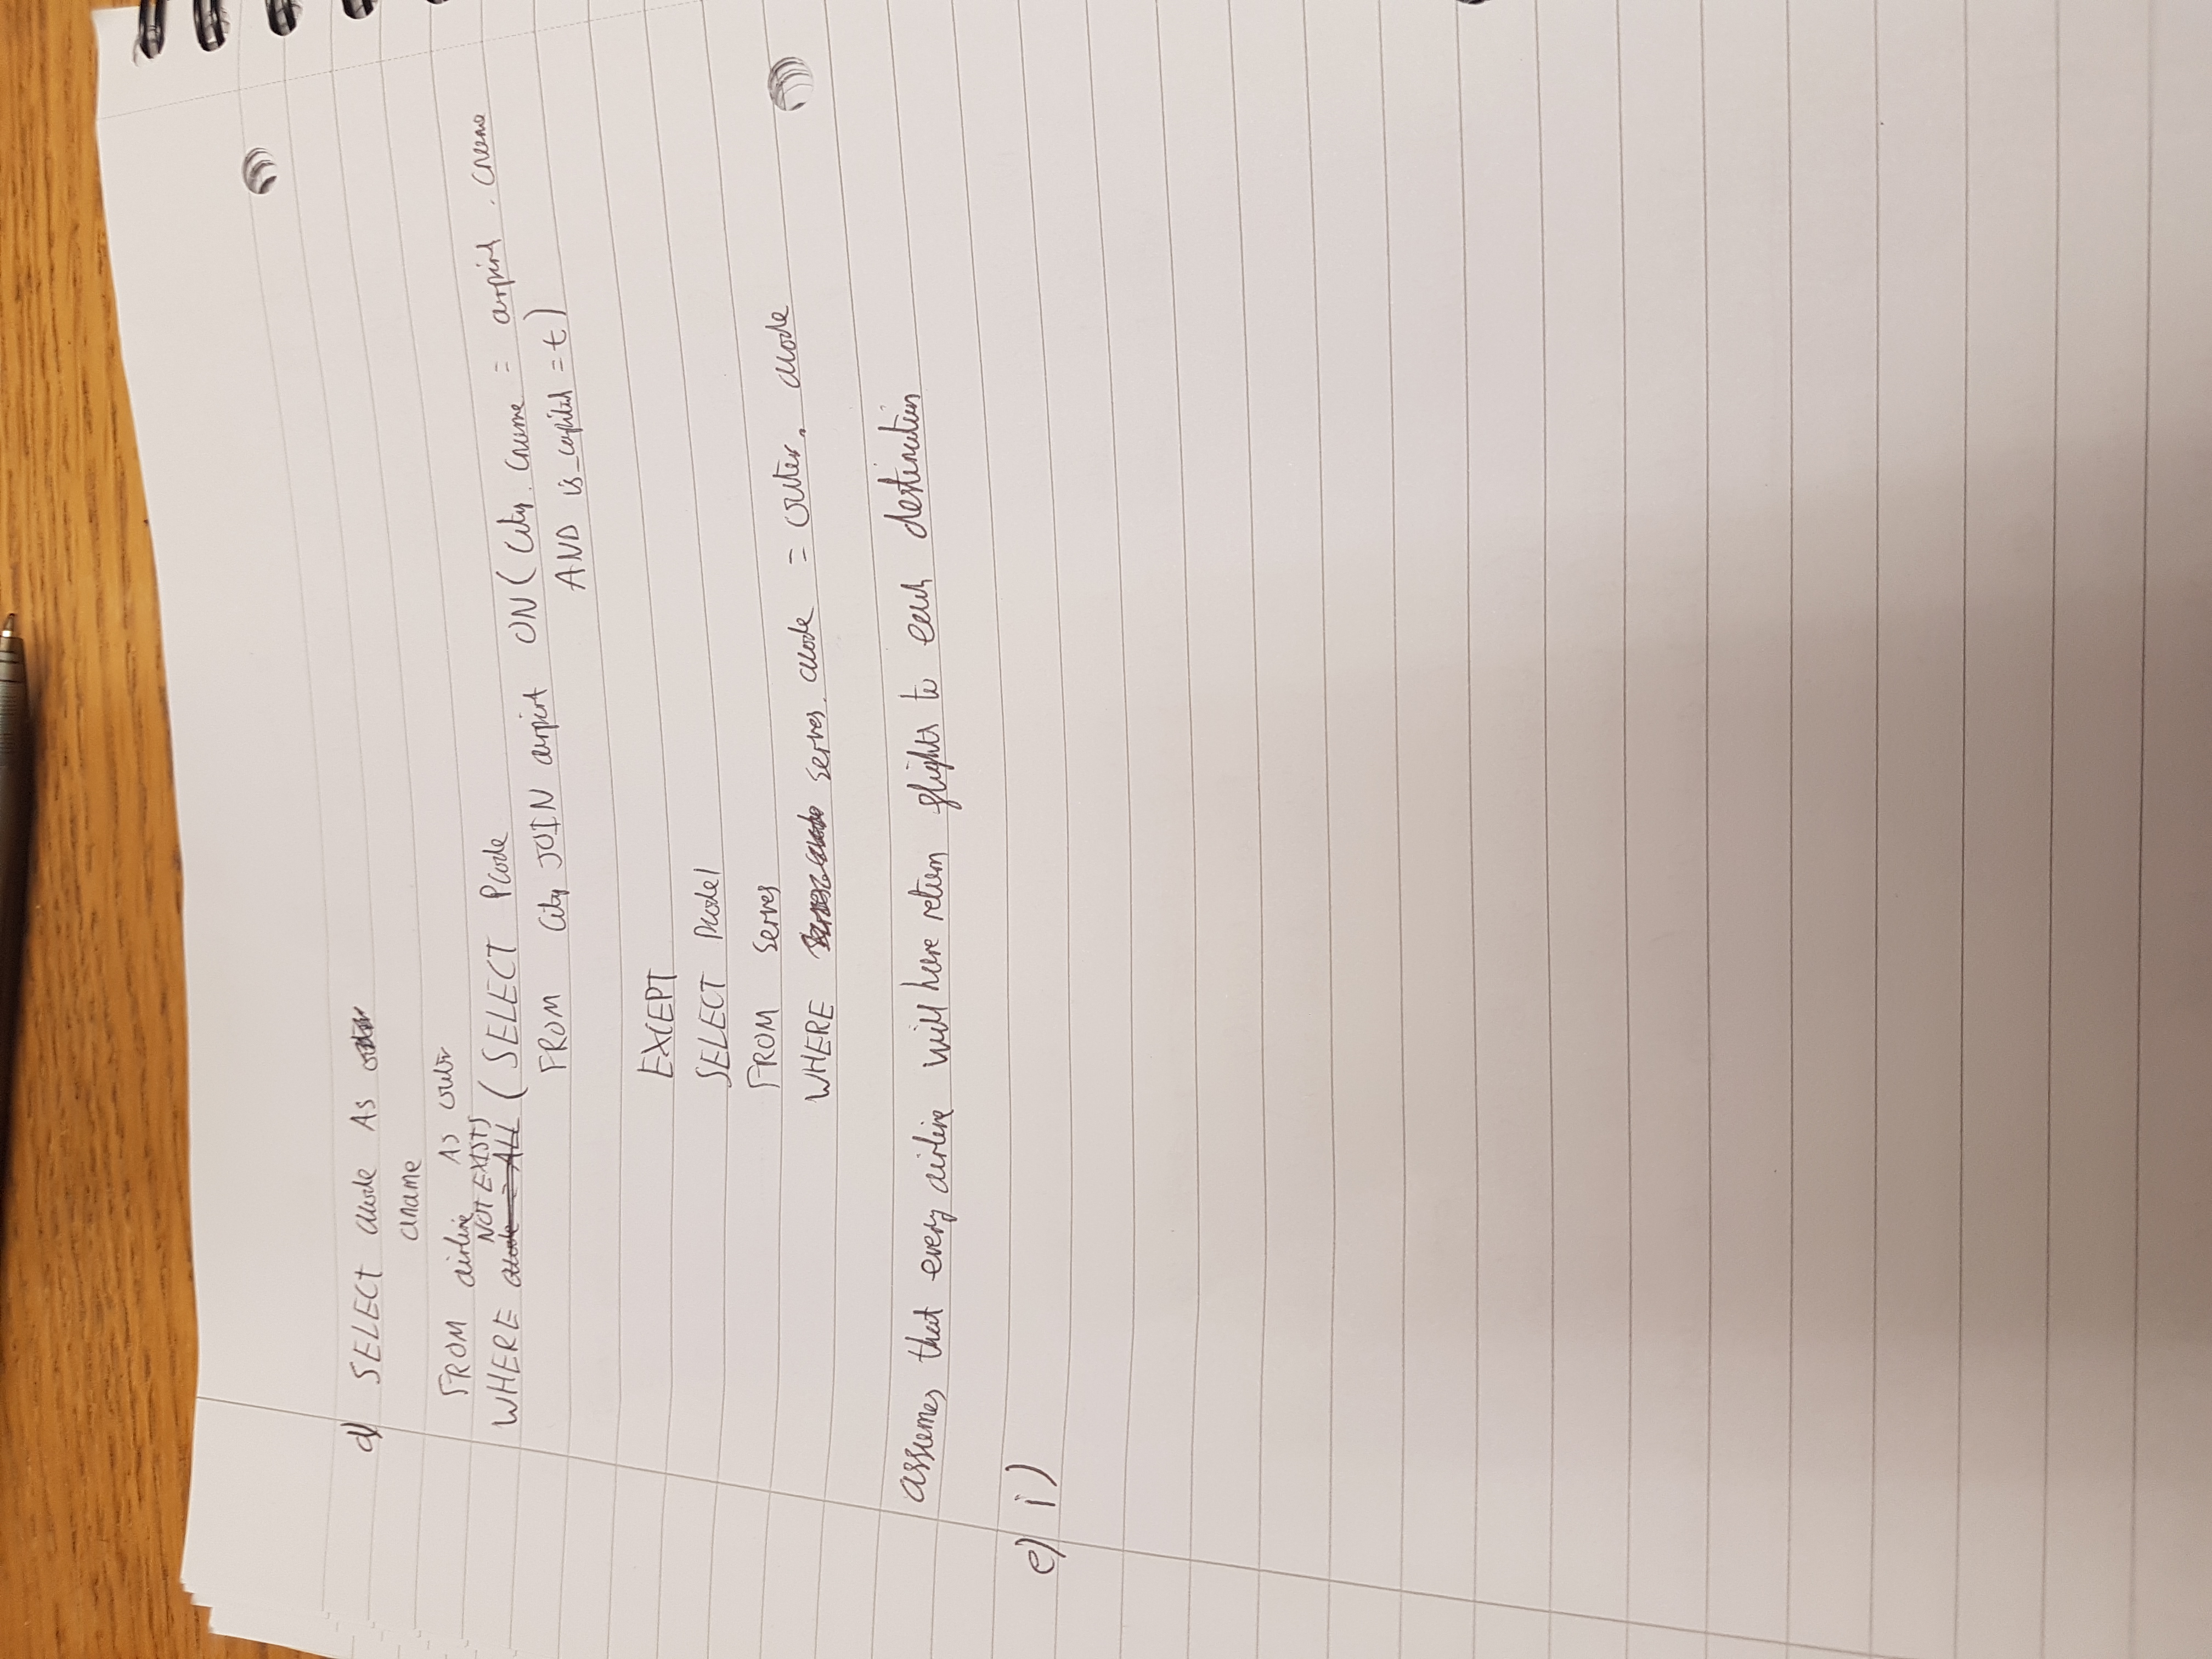 d) SELECT acode AS
aname
FROM airline AS outer
NOT EXISTS
WHERE acode = ALL ( SELECT Pcode
FROM City JOIN airport ON ( City. Cname = airport . Cname
AND is_capital = t )
EXCEPT
SELECT Pcode1
FROM serves
WHERE serves. acode = outer. acode
assumes that every airline will have return flights to each destination
e) i)